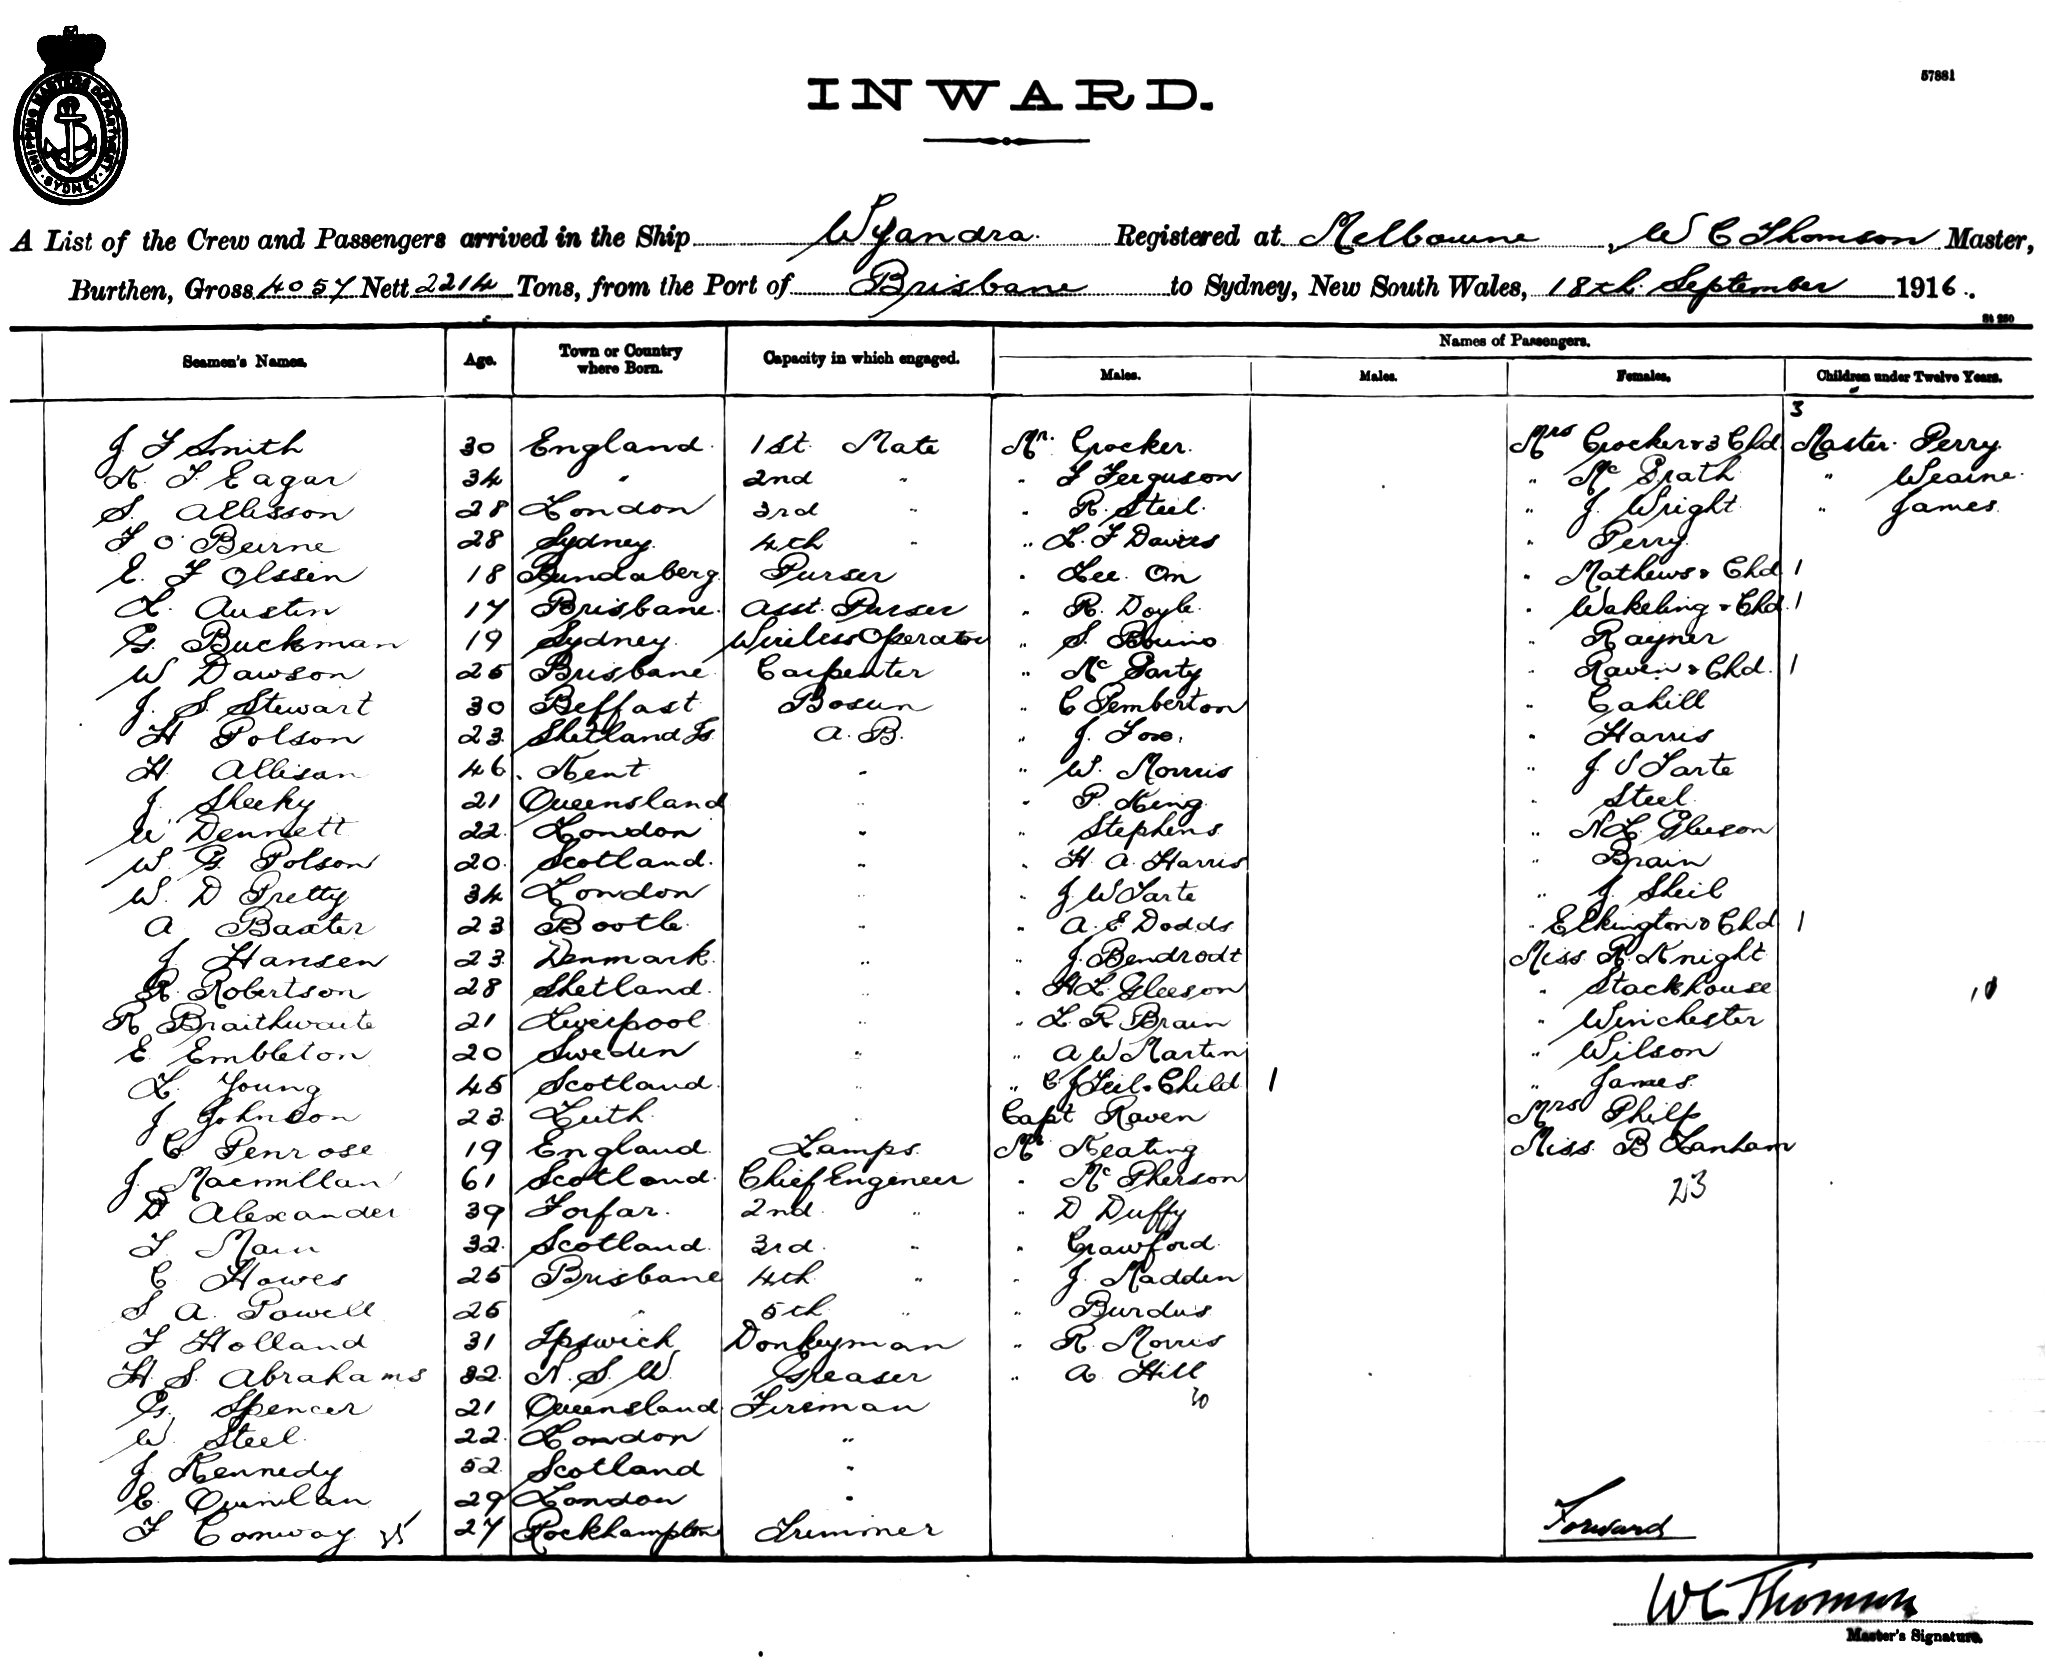 SHIPPING MASTERS DEPARTMENT. SYDNEY
INWARD.
57881
A List of the Crew and Passengers arrived in the Ship Wyandra. Registered at Melbourne, W C Thomson Master,
Burthen, Gross 4057 Nett 2214 Tons, from the Port of Brisbane to Sydney, New South Wales, 18th September 1916.
St 250
Names of Passengers.
Seamen's Names. Age. Town or Country where Born. Capacity in which engaged. Males. Males. Females. Children under Twelve Years.
3
J F Smith 30 England 1st Mate Mr. Crocker. Mrs Crocker & 3 Chd Master Perry
K. F. Eagar 34 " 2nd " " F Ferguson " Mc Grath " Wearne
S. Allisson 28 London 3rd " " R. Steel " J. Wright " James
F O'Beirne 28 Sydney 4th " " L. F Davies " Perry
E. F Olssen 18 Bundaberg Purser " Lee On " Mathews & Chd 1
L. Austin 17 Brisbane Asst. Purser " R. Doyle " Wakeling & Chd. 1
G. Buckman 19 Sydney Wireless Operator " S. Bruno " Rayner
W Dawson 25 Brisbane Carpenter " Mc Garty " Raven & Chd. 1
J. S. Stewart 30 Belfast Bosun " C Pemberton " Cahill
H Polson 23 Shetland Is A. B. " J. Fox. " Harris
H. Allison 46 Kent " " W. Morris " J S Tarte
J. Sheehy 21 Queensland " " P. King " Steel
W Dennett 22 London " " Stephens " N L Gleeson
W. G. Polson 20 Scotland " " H. A. Harris " Brain
W. D Pretty 34 London " " J W Tarte " J. Sheil
A Baxter 23 Bootle " " A. E Dodds " Elkington & Chd 1
J. Hansen 23 Denmark " " J. Bendrodt Miss R. Knight
R. Robertson 28 Shetland " " H L Gleeson " Stackhouse 10
R Braithwaite 21 Liverpool " " L R Brain " Winchester
E. Embleton 20 Sweden " " A W Martin " Wilson
L. Young 45 Scotland " " C J Teil & Child 1 " James
J Johnson 23 Leith " Capt Raven Mrs Philp
C Penrose 19 England Lamps Mr Keating Miss B Lanham
J. Macmillan 61 Scotland Chief Engineer " Mc Pherson 23
D Alexander 39 Forfar 2nd " " D Duffy
T Main 32 Scotland 3rd " " Crawford
C Hawes 25 Brisbane 4th " " J. Madden
S A. Powell 25 " 5th " " Burdus
F Holland 31 Ipswich Donkeyman " R. Morris
H. S. Abrahams 32 N. S. W. Greaser " A Hill
G. Spencer 21 Queensland Fireman 30
W. Steel 22 London "
J. Kennedy 52 Scotland "
E. Quinlan 29 London "
F Conway 35 27 Rockhampton Trimmer Forward
W C Thomson
Master's Signature.